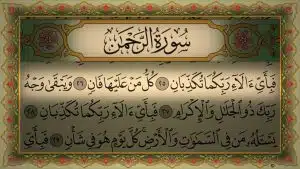 سُورَةُ الرَّحْمَٰن
فَبِأَيِّ ءَالَآءِ رَبِّكُمَا تُكَذِّبَانِ ٢٥ كُلُّ مَنْ عَلَيْهَا فَانٍ ٢٦ وَيَبْقَىٰ وَجْهُ
رَبِّكَ ذُو ٱلْجَلَٰلِ وَٱلْإِكْرَامِ ٢٧ فَبِأَيِّ ءَالَآءِ رَبِّكُمَا تُكَذِّبَانِ ٢٨
يَسْـَٔلُهُۥ مَن فِى ٱلسَّمَٰوَٰتِ وَٱلْأَرْضِ ۚ كُلَّ يَوْمٍ هُوَ فِى شَأْنٍ ٢٩ فَبِأَيِّ